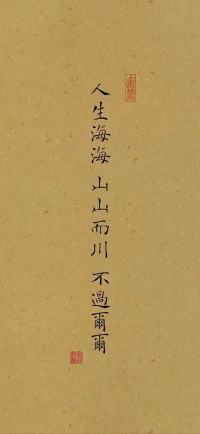 人生海海 山山而川 不過爾爾